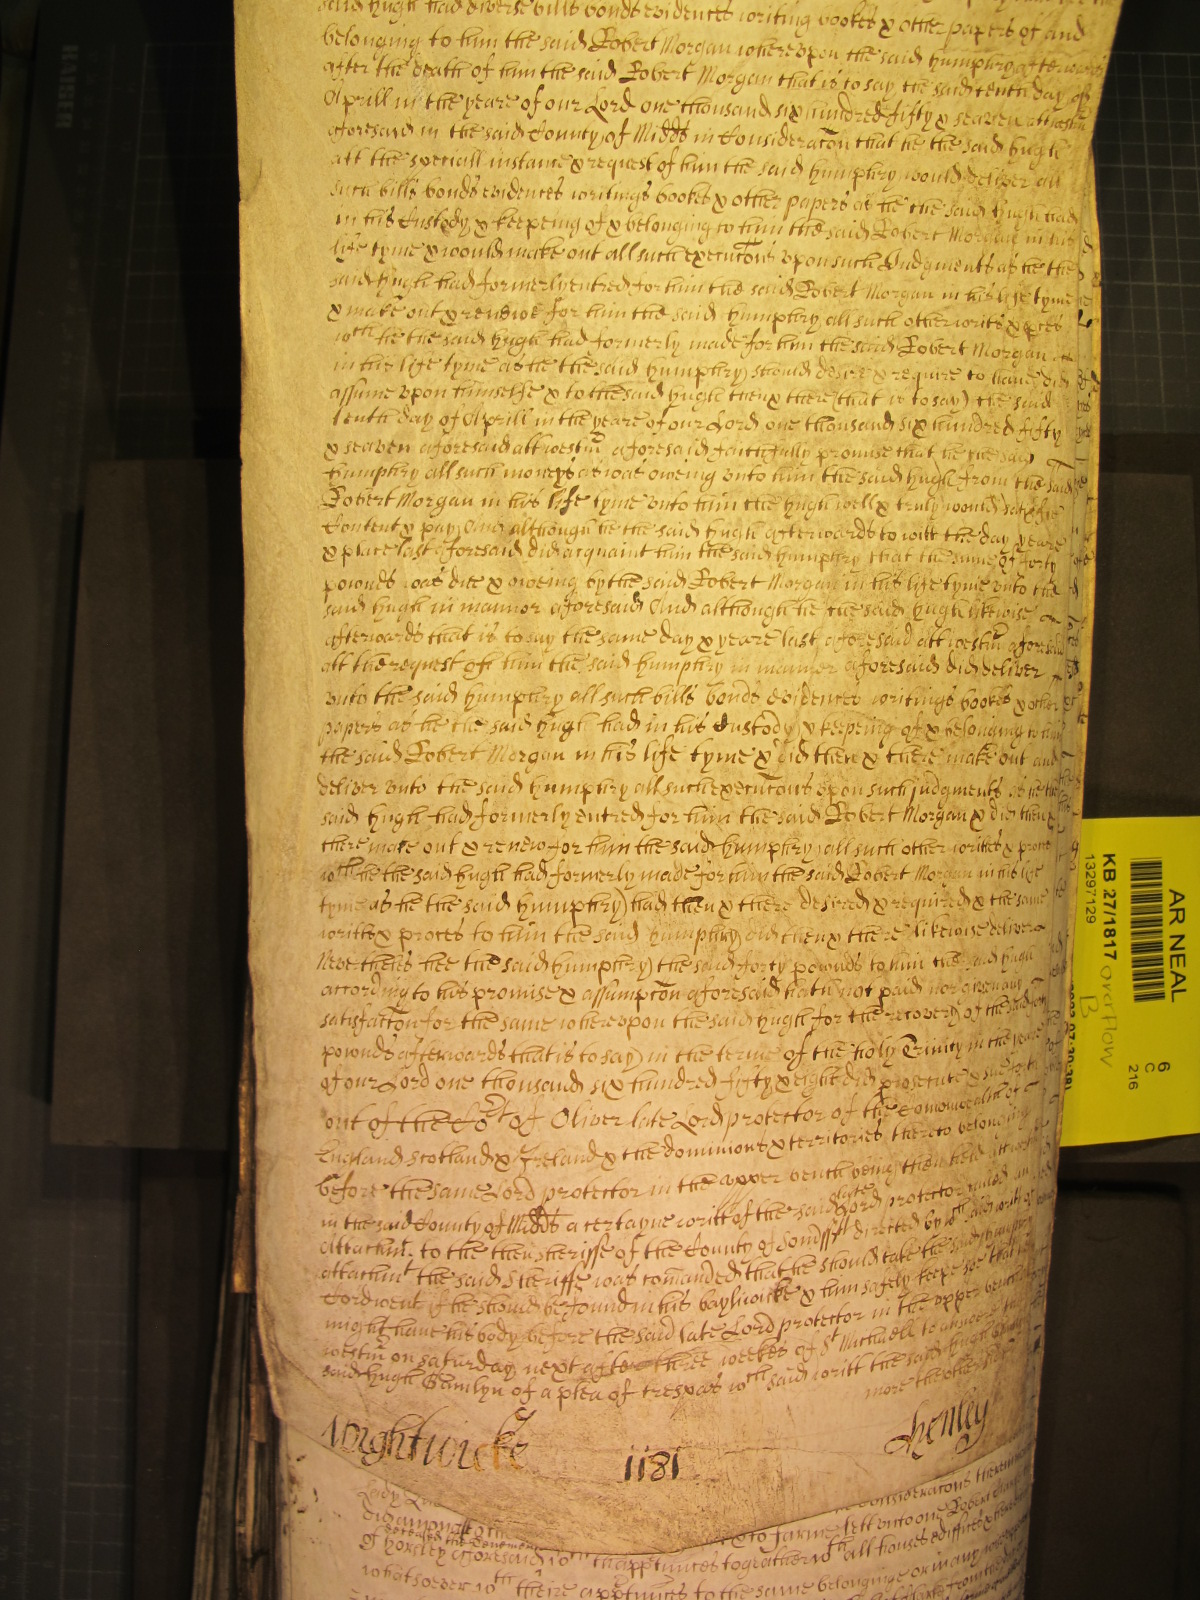 said Hugh had diverse bills bonds evidences writing bookes & other papers of and
belonging to him the said Robert Morgan whereupon the said Humphry afterwards
after the death of him the said Robert Morgan that is to say the said tenth day of
Aprill in the yeare of our Lord one thousand six hundred fifty & seaven att westm
aforesaid in the said County of Midds in Consideracon that he the said Hugh
att the speciall instance & request of him the said Humphry would deliver all
such bills bonds evidences writings bookes & other papers as he the said Hugh had
in his Custody & keepeing of & belonging to him the said Robert Morgan in his
life tyme & would make out all such execucons upon such Judgments as he the
said Hugh had formerly entred for him the said Robert Morgan in his life tyme
& make out & renewe for him the said Humphry all such other writts & proces
wch he the said Hugh had formerly made for him the said Robert Morgan
in his life tyme as he the said Humphry should desire & require to have did
assume upon himselfe & to the said Hugh then & there (that is to say) the said
tenth day of Aprill in the yeare of our Lord one thousand six hundred fifty
& seaven aforesaid att westm aforesaid faithfully promise that he the said
Humphry all such moneys as was oweing unto him the said Hugh from the said
Robert Morgan in his life tyme unto him the Hugh well & truly would satisfie
Content & pay And although he the said Hugh afterwards to witt the day yeare
& place last aforesaid did acquaint him the said Humphry that the sume of forty
pounds was due & oweing by the said Robert Morgan in his life tyme unto the
said Hugh in mannor aforesaid And although he the said Hugh likewise
afterwards that is to say the same day & yeare last aforesaid att westm aforesaid
att the request of him the said Humphry in manner aforesaid did deliver
unto the said Humphry all such bills bonds evidences writings bookes & other
papers as he the said Hugh had in his Custody & keepeing of & belonging to him
the said Robert Morgan in his life tyme & did then & there make out and
deliver unto the said Humphry all such execucons upon such judgments as he the
said Hugh had formerly entred for him the said Robert Morgan & did then &
there make out & renew for him the said Humphry all such other writts & proces
wch he the said Hugh had formerly made for him the said Robert Morgan in his life
tyme as he the said Humphry had then & there desired & required & the same
writts & proces to him the said Humphry did then & there likewise deliver
Neverthelés hee the said Humphry the said forty pounds to him the said Hugh
according to his promise & assumpcon aforesaid hath not paid nor given any
satisfaccon for the same whereupon the said Hugh for the recovery of the said forty
pounds afterwards that is to say in the terme of the holy Trinity in the yeare
of our Lord one thousand six hundred fifty & eight did prosecute & sue forth
out of the Cort of Oliver late Lord protector of the Comonwealth of
England Scotland & Ireland & the dominions & territories thereto belonging
before the same Lord protector in the upper bench being then held att westm
in the said County of Midds a certayne writt of the said late Lord protector called an
Attachmt to the then Sheriffe of the County of Somsstt directed by wch said writt of
attachmt the said Sheriffe was comanded that he should take the said Humphry
Cordwent if he should be found in his bayliwicke & him safely keepe soe that he
might have his body before the said late Lord protector in the upper bench att
westm on saturday next after three weekes of St Michaell to answere the
said Hugh Gamlyn of a plea of trespas wch said writt the said Hugh
more the other side
Wightwicke 1181 Henley
Consideracons therein
& to farme lett unto one Robert
of Horsley aforesaid wth thapptnnces togeather wth all houses edifices
whatsoever wth theire apptnnces to the same belonginge or in any
AR NEAL
KB 27/1817 overflow
B
13297129
6
C
216